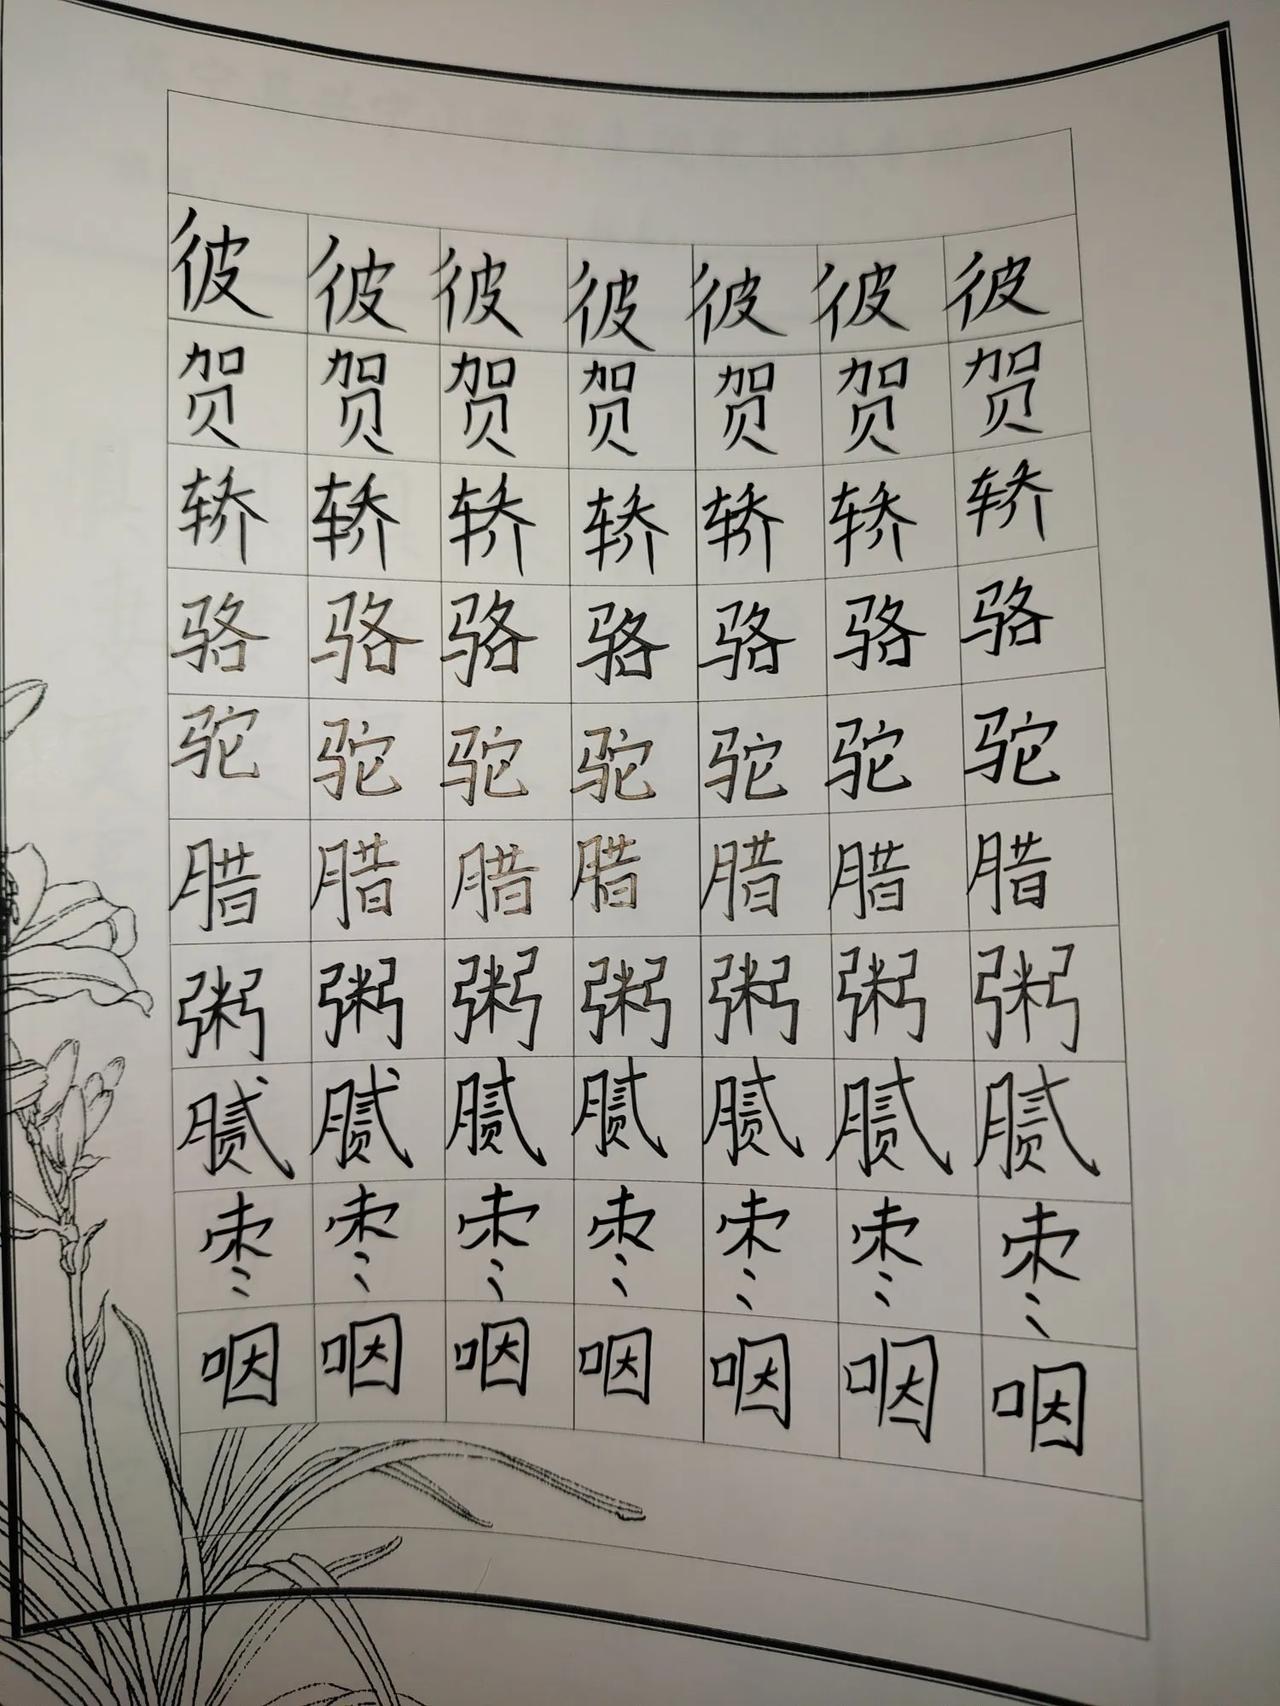 彼彼彼彼彼彼彼
贺贺贺贺贺贺贺
轿轿轿轿轿轿轿
骆骆骆骆骆骆骆
驼驼驼驼驼驼驼
腊腊腊腊腊腊腊
粥粥粥粥粥粥粥
腻腻腻腻腻腻腻
枣枣枣枣枣枣枣
咽咽咽咽咽咽咽